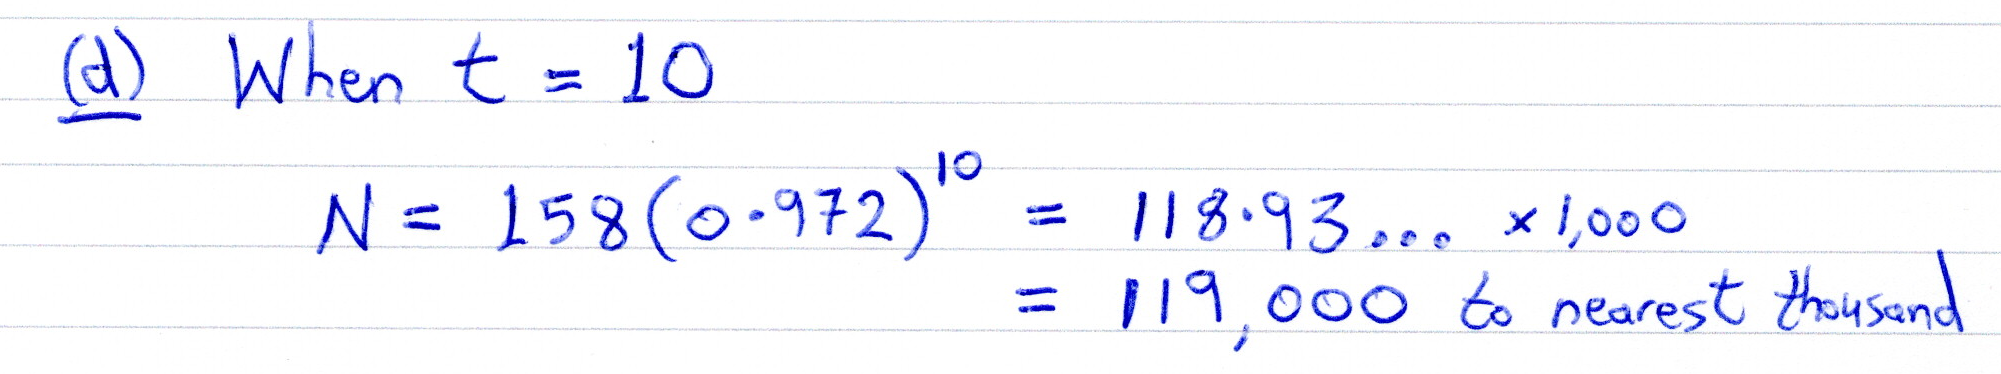 (d) When t = 10
N = 158(0.972)¹⁰ = 118.93... × 1,000
= 119,000 to nearest thousand